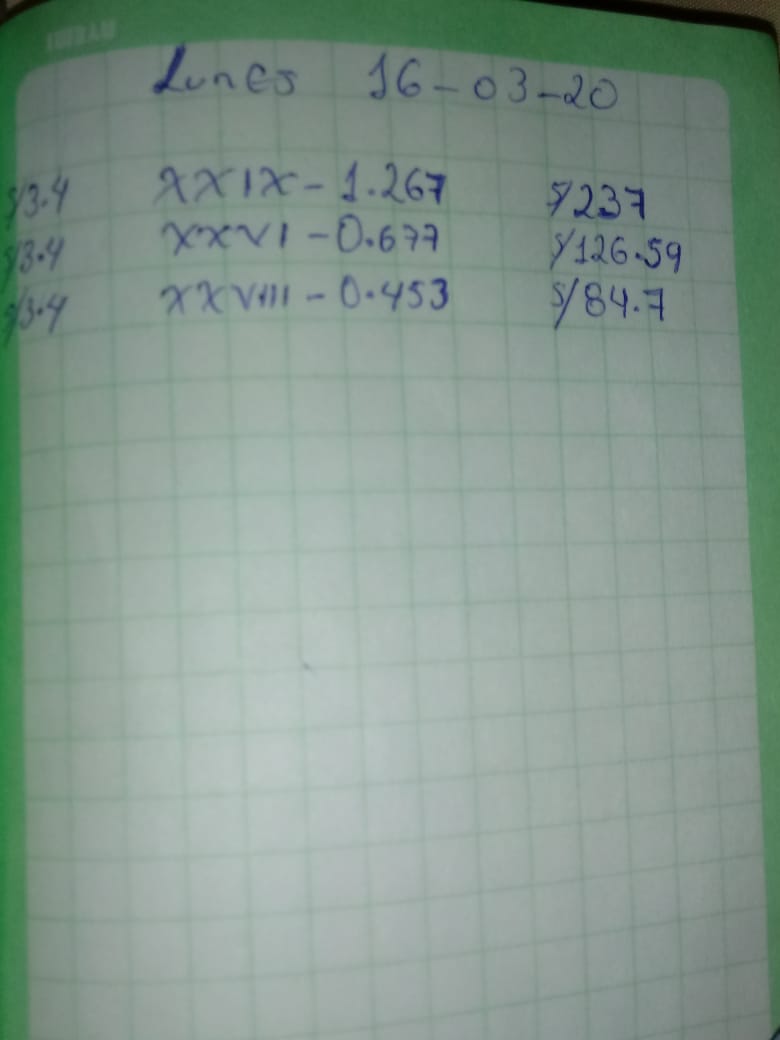 Lunes 16-03-20
S/3.4 XXIX - 1.267 S/237
S/3.4 XXVI - 0.677 S/126.59
S/3.4 XXVIII - 0.453 S/84.7